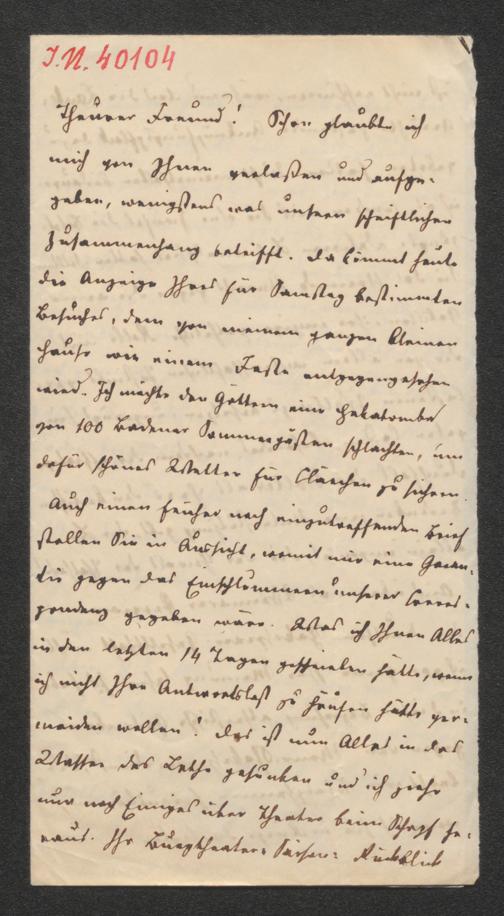 I.N. 40104
Theurer Freund! Schon glaubte ich
mich von Ihnen verlaßen und aufge-
geben, wenigstens was unsern schriftlichen
Zusammenhang betrifft. Da kömmt heute
die Anzeige Ihres für Samstag bestimmten
Besuches, dem von meinem ganzen kleinen
Hause wie einem Feste entgegengesehen
wird. Ich möchte den Göttern eine Hekatombe
von 100 Badener Sommergästen schlachten, um
dafür schönes Wetter für Clärchen zu sichern.
Auch einen früher noch einzutreffenden Brief
stellen Sie in Aussicht, womit mir eine Garan-
tie gegen das Einschlummern unserer Corres-
pondenz gegeben wäre. Was ich Ihnen Alles
in den letzten 14 Tagen geschrieben hätte, wenn
ich nicht Ihre Antwortslast zu häufen hätte ver-
meiden wollen! Das ist nun Alles in das
Wasser des Lethe gesunken und ich ziehe
nur noch Einiges über Theater beim Schopf he-
raus. Ihr Burgtheater- Rückblick